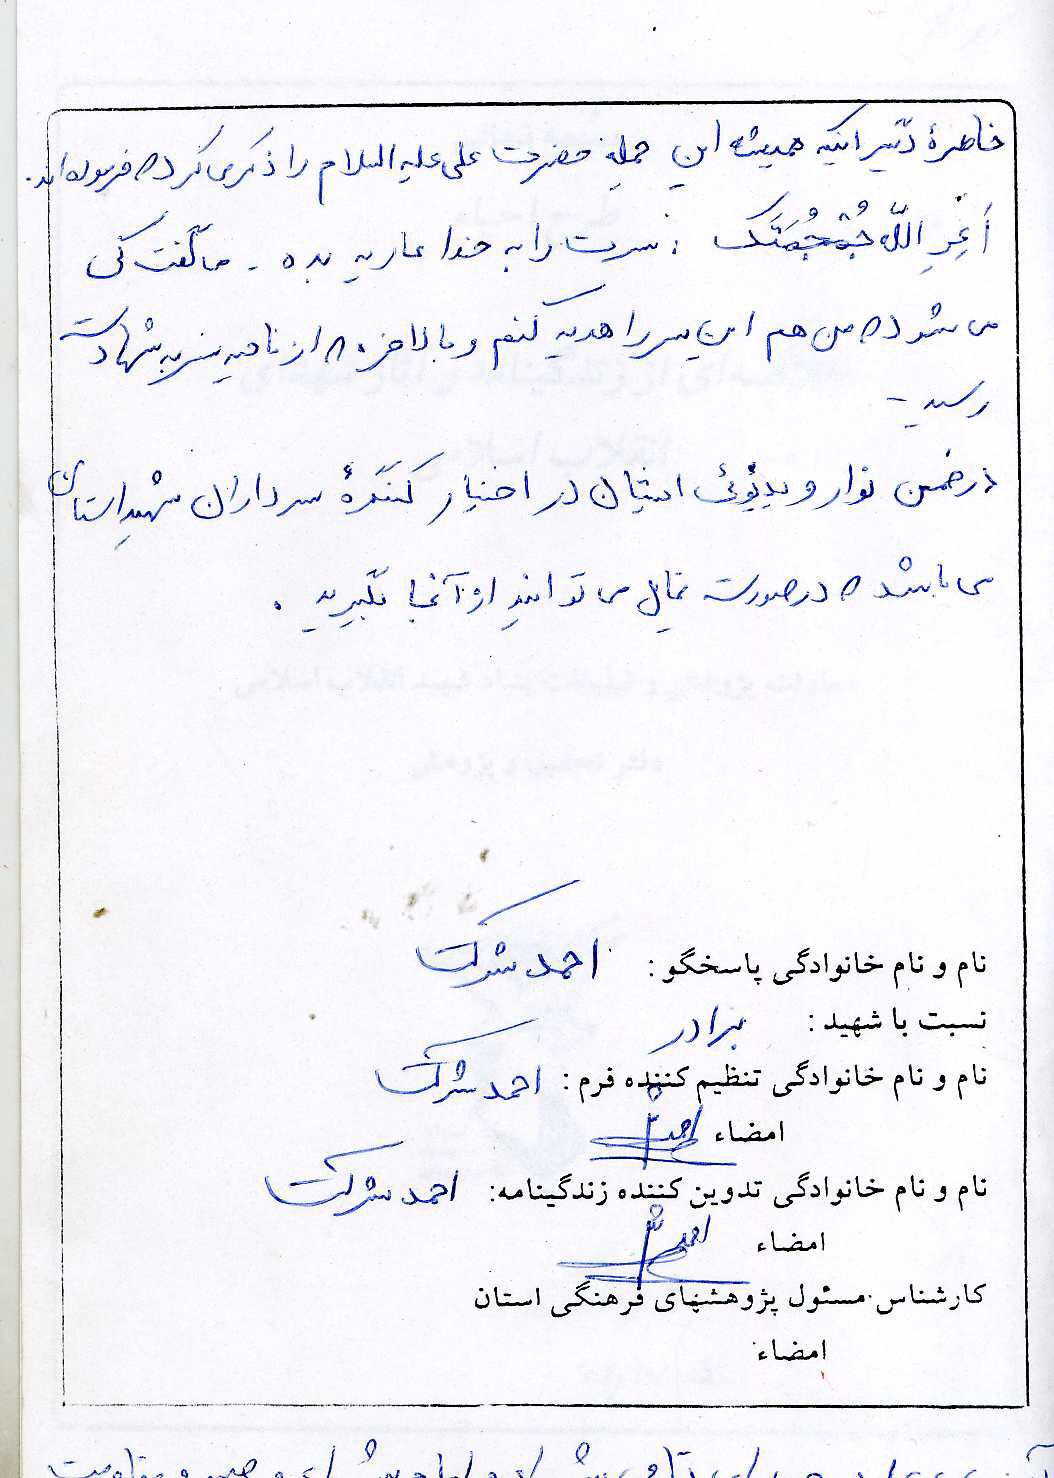 خاطرهٔ دیگر اینکه همیشه این جمله حضرت علی علیه السلام را ذکر می کرد که فرموده اند.
أَعِرِ اللّٰه جُمْجُمَتَک : سرت را به خدا عاریه بده - می گفت کی
می شود که من هم این سر را هدیه کنم و بالاخره از ناحیه سر به شهادت
رسید -
در ضمن نوار ویدیوئی ایشان در اختیار کنگرهٔ سرداران شهید استان
می باشد که در صورت تمایل می توانید از آنجا بگیرید .
نام و نام خانوادگی پاسخگو : احمد شرکت
نسبت با شهید : برادر
نام و نام خانوادگی تنظیم کننده فرم : احمد شرکت
امضاء
نام و نام خانوادگی تدوین کننده زندگینامه: احمد شرکت
امضاء
کارشناس مسئول پژوهشهای فرهنگی استان
امضاء